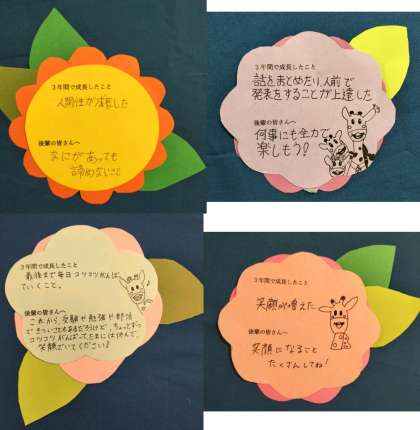 3年間で成長したこと
人間性が成長した
後輩の皆さんへ
なにがあっても
諦めないこと
3年間で成長したこと
話をまとめたり、人前で
発表をすることが上達した
後輩の皆さんへ
何事にも全力で
楽しもう!
3年間で成長したこと
最後まで毎日コツコツがんばっ
ていくこと。
後輩の皆さんへ
これから、受験や勉強や部活
できついこともあるだろけど、ちょっとずつ
コツコツがんばって、たまには休んで、
笑顔でいてください!
3年間で成長したこと
笑顔が増えた
後輩の皆さんへ
笑顔になること
たくさんしてね!